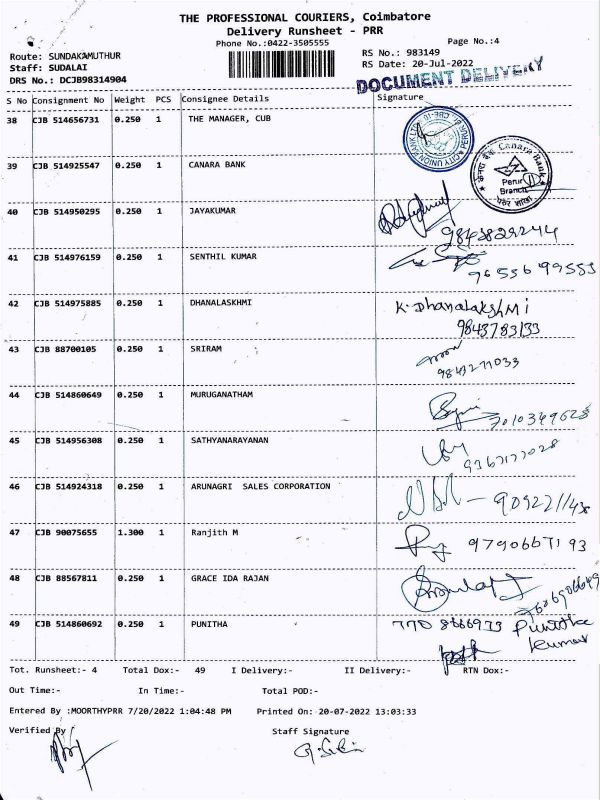 THE PROFESSIONAL COURIERS, Coimbatore
Delivery Runsheet - PRR
Phone No.:0422-3505555
Page No.:4
Route: SUNDAKAMUTHUR
RS No.: 983149
Staff: SUDALAI
RS Date: 20-Jul-2022
DRS No.: DCJB98314904
DOCUMENT DELIVERY
S No Consignment No Weight PCS Consignee Details Signature
38 CJB 514656731 0.250 1 THE MANAGER, CUB
39 CJB 514925547 0.250 1 CANARA BANK
Canara Bank
Perur
Branch
40 CJB 514950295 0.250 1 JAYAKUMAR
9843829244
41 CJB 514976159 0.250 1 SENTHIL KUMAR
9655699553
42 CJB 514975885 0.250 1 DHANALASKHMI K. Dhanalakshmi
9843783133
43 CJB 88700105 0.250 1 SRIRAM
9843271033
44 CJB 514860649 0.250 1 MURUGANATHAM
7010349628
45 CJB 514956308 0.250 1 SATHYANARAYANAN
9367177028
46 CJB 514924318 0.250 1 ARUNAGRI SALES CORPORATION
47 CJB 90075655 1.300 1 Ranjith M 9790667193
48 CJB 88567811 0.250 1 GRACE IDA RAJAN
49 CJB 514860692 0.250 1 PUNITHA Punitha
Kumar
Tot. Runsheet:- 4 Total Dox:- 49 I Delivery:- II Delivery:- RTN Dox:-
Out Time:- In Time:- Total POD:-
Entered By :MOORTHYPRR 7/20/2022 1:04:48 PM Printed On: 20-07-2022 13:03:33
Verified By Staff Signature